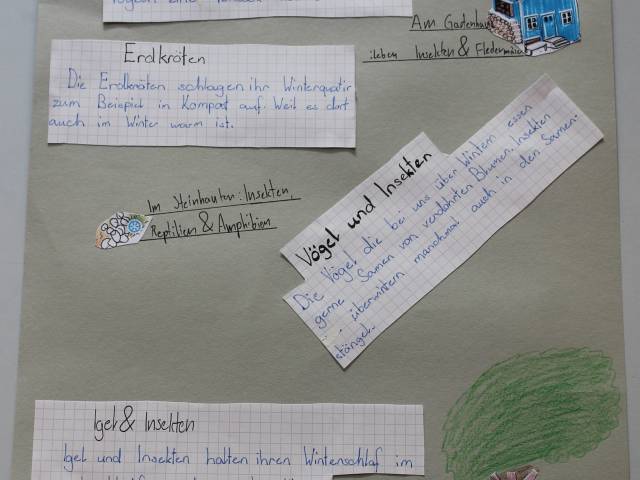 Am Gartenhaus
leben Insekten & Fledermäuse
Erdkröten
Die Erdkröten schlagen ihr Winterquatir
zum Beispiel in Kompost auf. Weil es dort
auch im Winter warm ist.
Im Steinhaufen: Insekten,
Reptilien & Amphibien
Vögel und Insekten
Die Vögel die bei uns über Wintern essen
gerne Samen von verdohrten Blumen. Insekten
überwintern manchmal auch in den Samen-
stängel.
Igel & Insekten
Igel und Insekten halten ihren Winterschlaf im